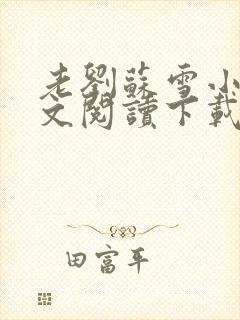 老劉蘇雪小
文閱讀下載
田富平